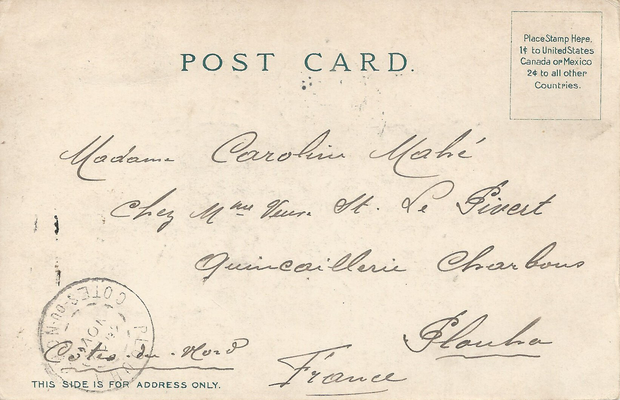 POST CARD.
Place Stamp Here.
1¢ to United States
Canada or Mexico
2¢ to all other
Countries.
Madame Caroline Mahé
Chez Mme Veuve St. Le Pivert
Quincaillerie Charbons
Plouha
Côtes-du-Nord
France
COTES-DU-NORD
THIS SIDE IS FOR ADDRESS ONLY.